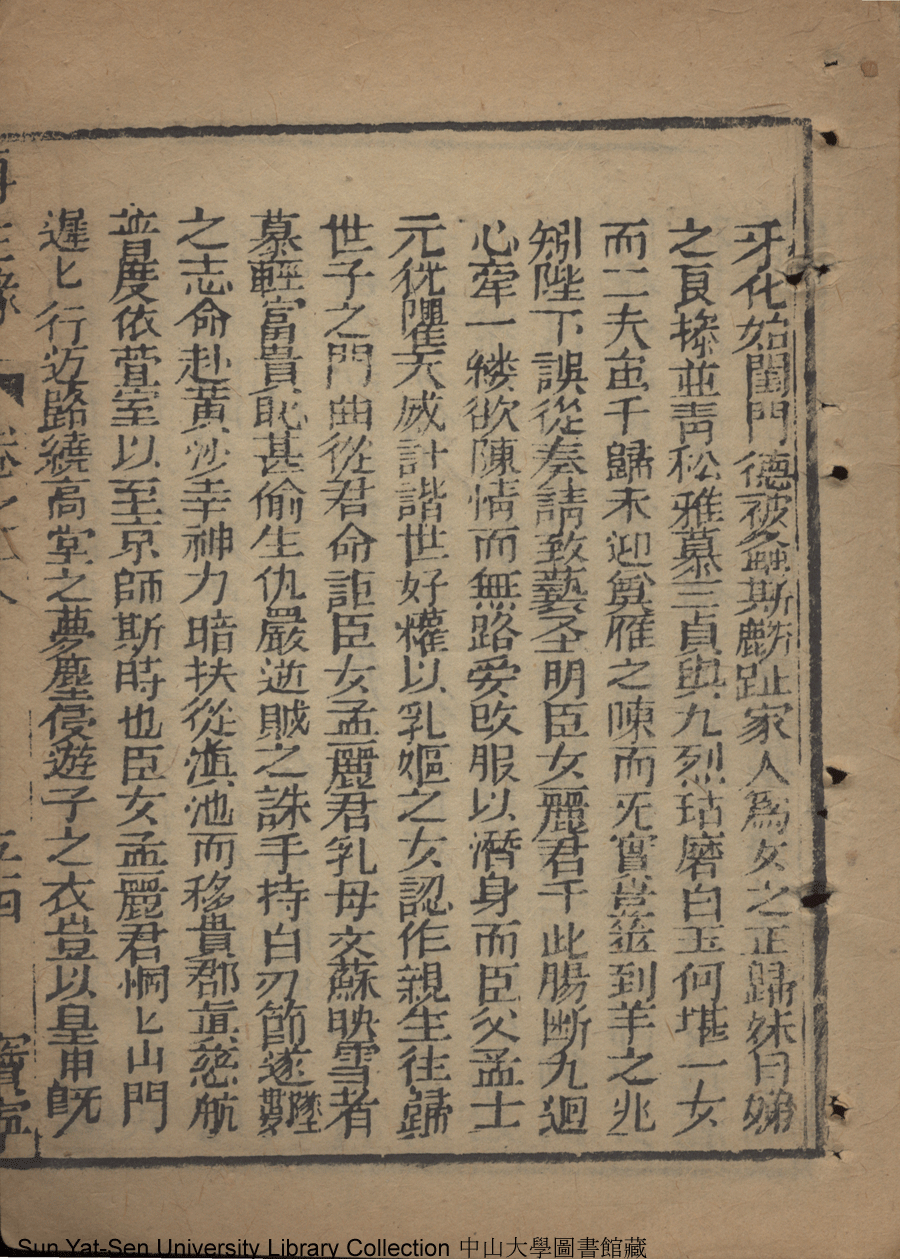 牙化始閨門德被螽斯麟趾家人為女之正歸妹曰娣
之良操並青松雅慕三貞與九烈玷磨白玉何堪一女
而二夫亩千歸未迎奠雁之陳而无實豈筮到羊之兆
矧陛下誤從奏請致藝圣明臣女麗君千此腸断九迴
心牽一缕欲陳情而無路爰改服以潛身而臣父孟士
元犹懼天威計諧世好權以乳嫗之女認作親生往歸
世子之門曲從君命詎臣女孟麗君乳母文蘇映雪者
慕輕富貴恥甚偷生仇嚴逆賊之誅手持白刃節遂墜
之志命赴黃沙幸神力暗扶從滇池而移貴郡真慈航
普度依萱室以至京師斯時也臣女孟麗君惘匕山門
遲匕行迈路繞高堂之夢塵侵遊子之衣豈以皇甫既
再生緣 卷之十八 五四 寶寧
Sun Yat-Sen University Library Collection 中山大學圖書館藏